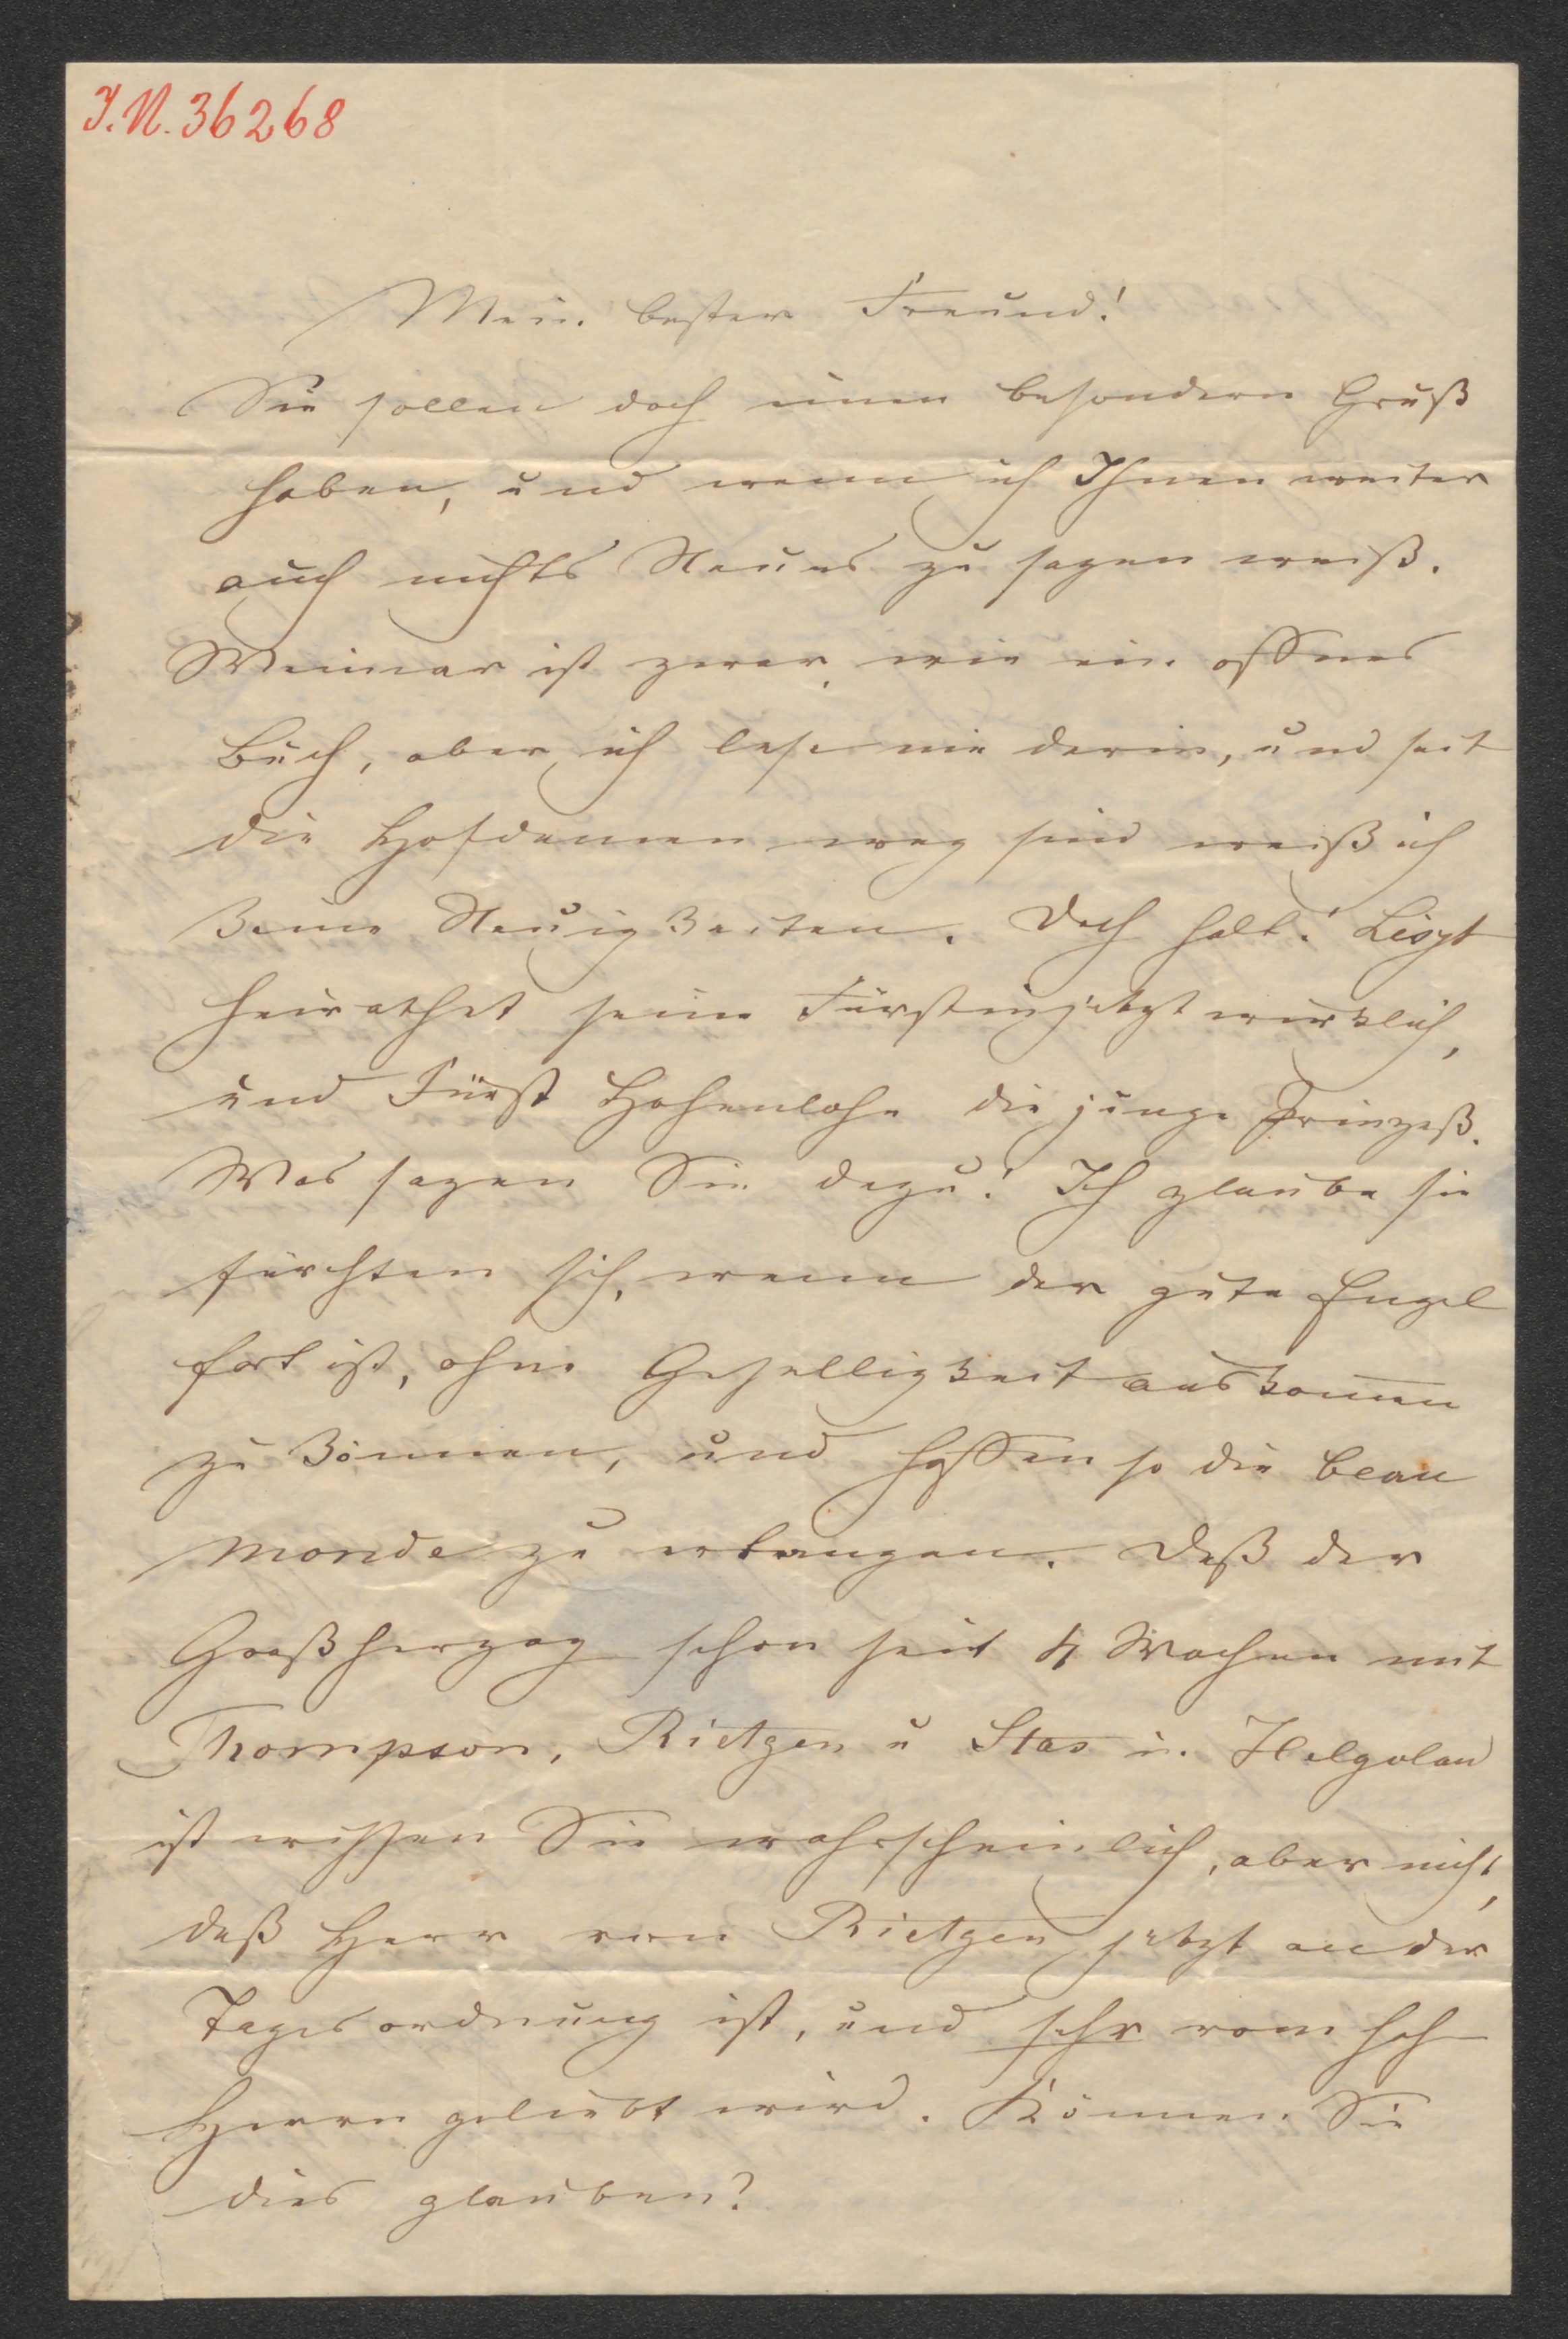 I.N. 36268
Mein bester Freund!
Sie sollen doch einen besondern Gruß
haben, und wenn ich Ihnen weiter
auch nichts Neues zu sagen weiß.
Weimar ist zwar wie ein offnes
Buch, aber ich lese nie darin, und seit
die Hofdamen weg sind weiß ich
keine Neuigkeiten. Doch halt! Liszt
heirathet seine Fürstin jetzt wirklich,
und Fürst Hohenlohe die junge Prinzeß.
Was sagen Sie dazu! Ich glaube sie
fürchten sich, wenn der gute Engel
fort ist, ohne Geselligkeit auskom̄en
zu können, und hoffen so die beau
monde zu erlangen. Daß der
Großherzog schon seit 4 Wochen mit
Thompson, Rietgen u Stas in Helgoland
ist wissen Sie wahrscheinlich, aber nicht,
daß Herr von Rietgen jetzt an der
Tagesordnung ist, und sehr vom hoh
Herrn geliebt wird. Können Sie
dies glauben?